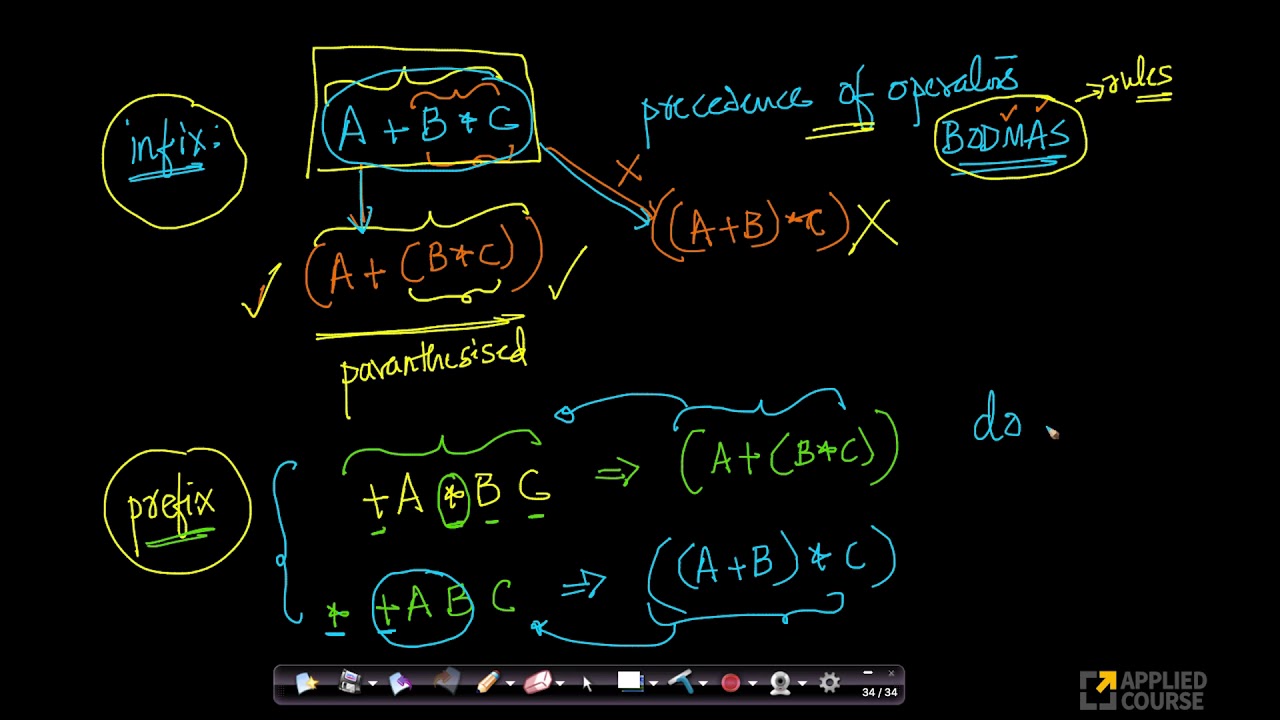 infix:
A + B * C
precedence of operators
BODMAS → rules
(A + (B * C))
((A+B) * C) X
paranthesised
prefix
+ A * B C ⇒ (A + (B * C))
do
* + A B C ⇒ ((A + B) * C)
34 / 34
APPLIED
COURSE